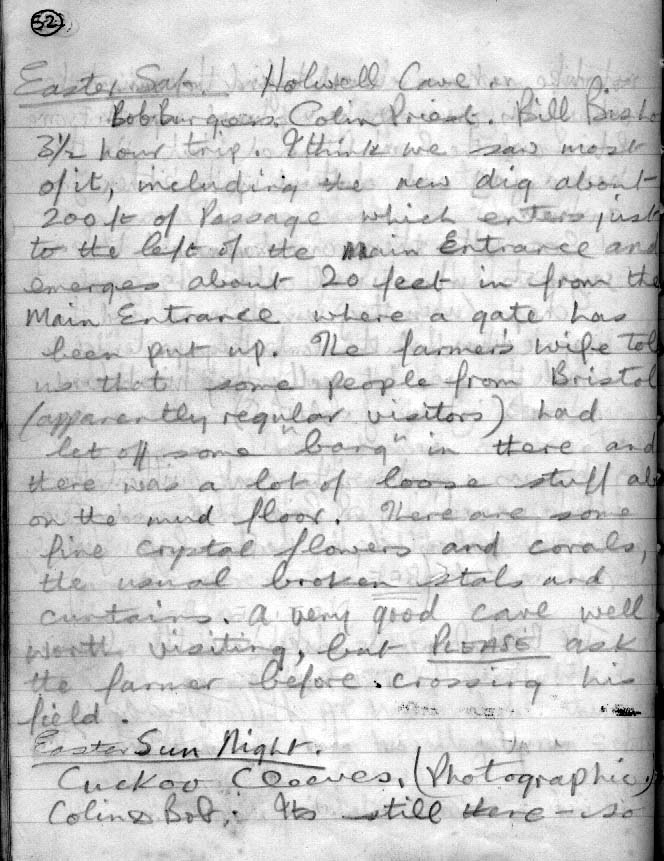 32
Easter Sat. Holwell Cave
Bob Burgess. Colin Priest. Bill Bisho
3½ hour trip. I think we saw most
of it, including the new dig about
200 ft of Passage which enters just
to the left of the Main Entrance and
emerges about 20 feet in from the
Main Entrance where a gate has
been put up. The farmer's wife Tol
us that some people from Bristol
(apparently regular visitors) had
let off some "bang" in there and
there was a lot of loose stuff al
on the mud floor. There are some
fine crystal flowers and corals,
the usual broken stals and
curtains. A very good cave well
worth visiting, but PLEASE ask
the farmer before crossing his
field.
Easter Sun Night.
Cuckoo Cleeves. (Photographic)
Colin & Bob; Its still there - so